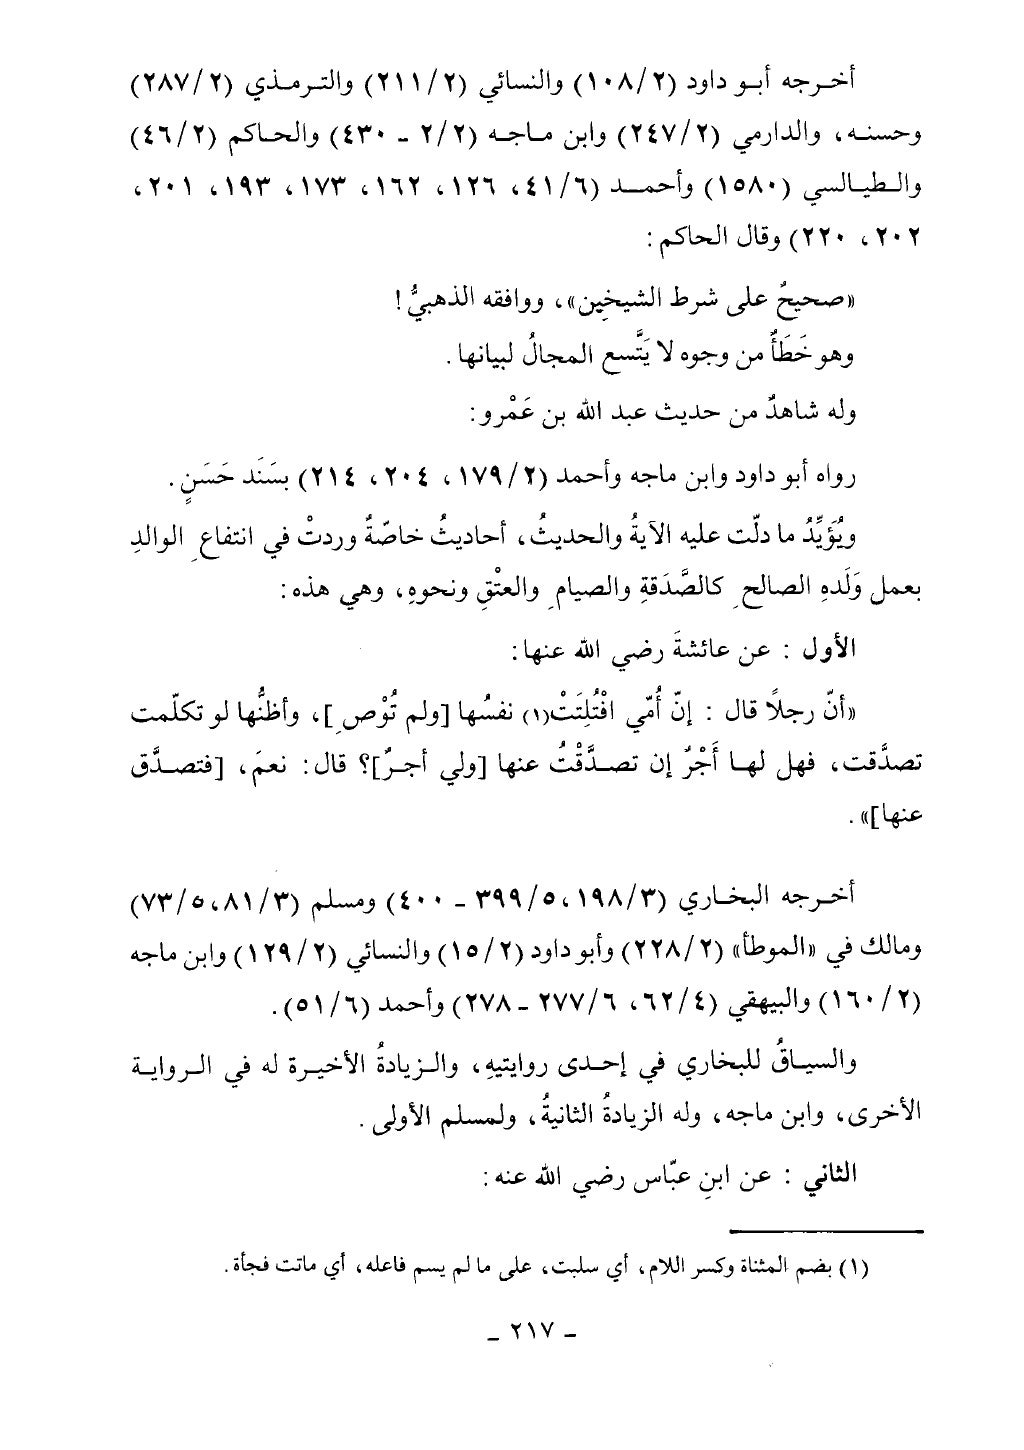 أخرجه أبو داود (٢/ ١٠٨) والنسائي (٢/ ٢١١) والترمذي (٢/ ٢٨٧)
وحسنه، والدارمي (٢/ ٢٤٧) وابن ماجه (٢/٢ ـ ٤٣٠) والحاكم (٢/ ٤٦)
والطيالسي (١٥٨٠) وأحمد (٦/ ٤١، ١٢٦، ١٦٢، ١٧٣، ١٩٣، ٢٠١،
٢٠٢، ٢٢٠) وقال الحاكم:
«صحيحٌ على شرط الشيخين»، ووافقه الذهبيُّ!
وهو خَطَأٌ من وجوه لا يَتَّسع المجالُ لبيانها.
وله شاهدٌ من حديث عبد الله بن عَمْرو:
رواه أبو داود وابن ماجه وأحمد (٢/ ١٧٩، ٢٠٤، ٢١٤) بسَنَد حَسَنٍ.
ويُؤَيِّدُ ما دلّت عليه الآيةُ والحديثُ، أحاديثُ خاصّةٌ وردتْ في انتفاعِ الوالدِ
بعمل وَلَدهِ الصالحِ كالصَّدَقةِ والصيامِ والعتْقِ ونحوهِ، وهي هذه:
الأول : عن عائشةَ رضي الله عنها:
«أنّ رجلاً قال : إنّ أُمّي افْتُلِتَتْ(١) نفسُها [ولم تُوْصِ]، وأظنُّها لو تكلّمت
تصدَّقت، فهل لها أَجْرٌ إن تصدَّقْتُ عنها [ولي أجرٌ]؟ قال: نعمَ، [فتصدَّق
عنها]».
أخرجه البخاري (٣/ ١٩٨، ٥/ ٣٩٩ ـ ٤٠٠) ومسلم (٣/ ٨١، ٥/ ٧٣)
ومالك في «الموطأ» (٢/ ٢٢٨) وأبو داود (٢/ ١٥) والنسائي (٢/ ١٢٩) وابن ماجه
(٢/ ١٦٠) والبيهقي (٤/ ٦٢، ٦/ ٢٧٧ ـ ٢٧٨) وأحمد (٦/ ٥١).
والسياقُ للبخاري في إحدى روايتيهِ، والزيادةُ الأخيرة له في الرواية
الأخرى، وابن ماجه، وله الزيادةُ الثانيةُ، ولمسلم الأولى.
الثاني : عن ابنِ عبّاس رضي الله عنه:
(١) بضم المثناة وكسر اللام، أي سلبت، على ما لم يسم فاعله، أي ماتت فجأة.
ـ ٢١٧ ـ